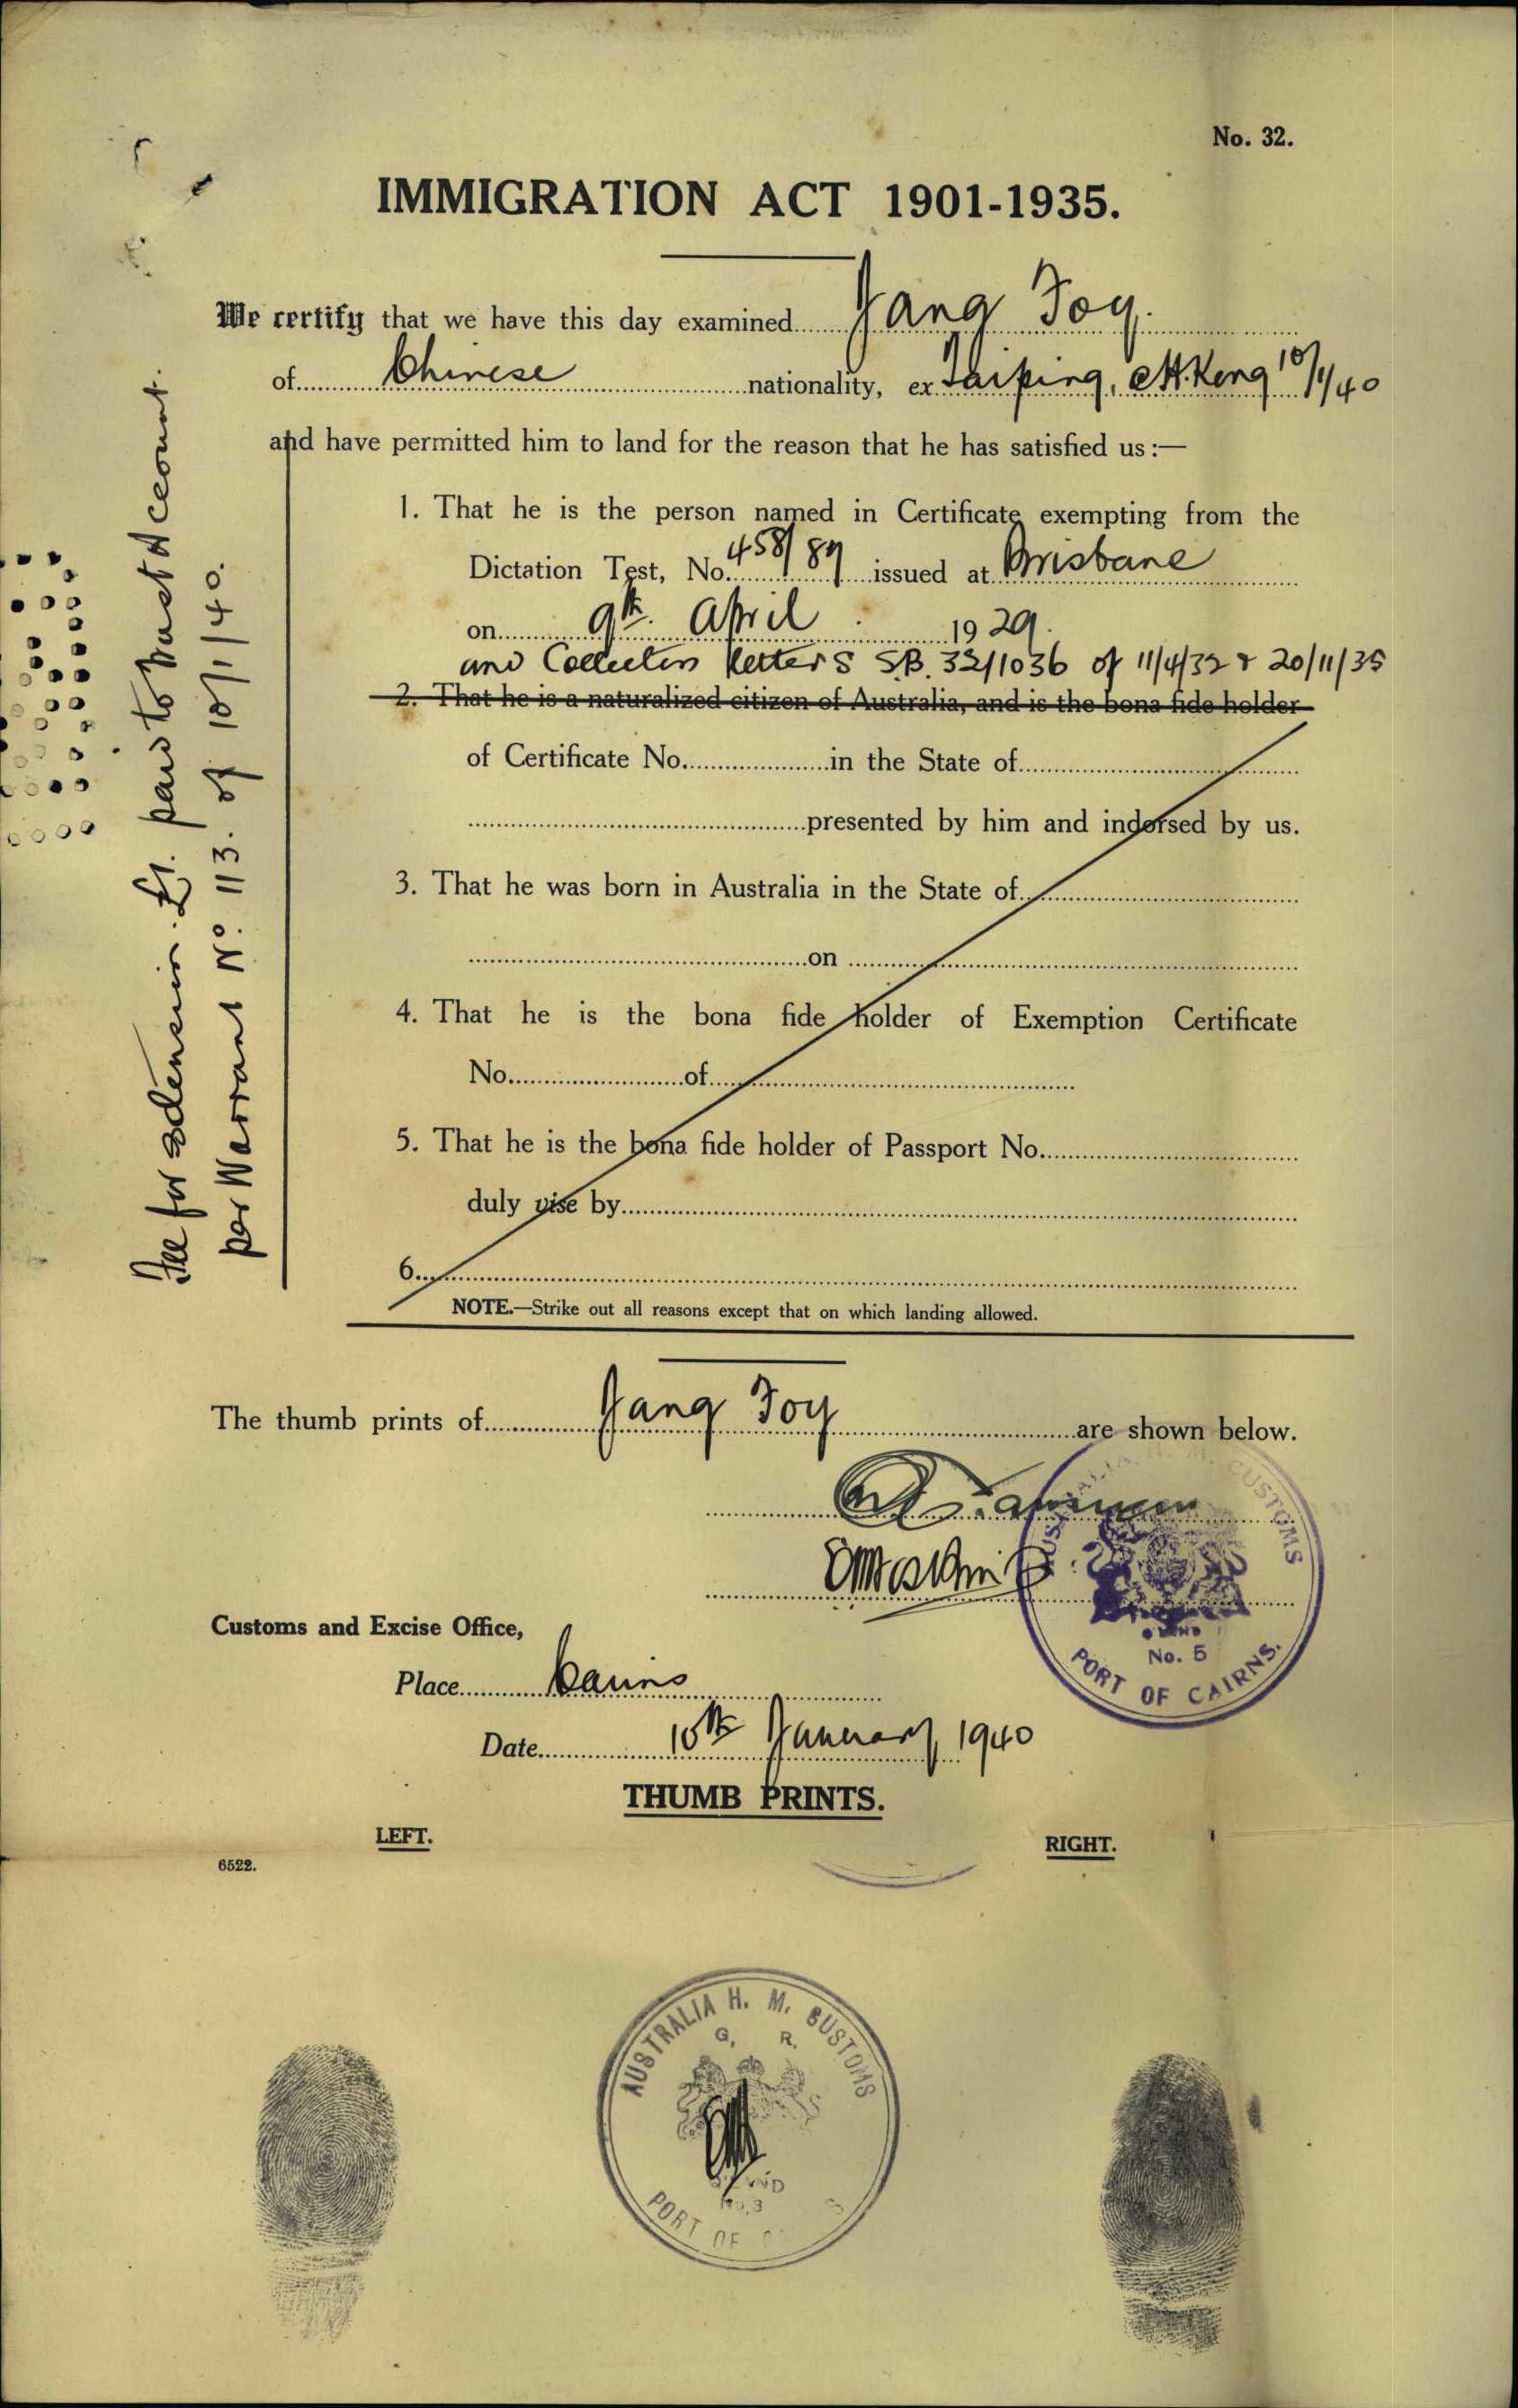 No. 32.
IMMIGRATION ACT 1901-1935.
We certify that we have this day examined Jang Foy.
of Chinese nationality, ex Taiping, e H. Kong 10/1/40
and have permitted him to land for the reason that he has satisfied us :—
1. That he is the person named in Certificate exempting from the
Dictation Test, No. 458/89 issued at Brisbane
on 9th. April 1929.
and Collectors letters S.B. 32/1036 of 11/4/32 & 20/11/35
2. That he is a naturalized citizen of Australia, and is the bona fide holder
of Certificate No. in the State of
presented by him and indorsed by us.
3. That he was born in Australia in the State of
on
4. That he is the bona fide holder of Exemption Certificate
No. of
5. That he is the bona fide holder of Passport No.
duly vise by
6.
NOTE.—Strike out all reasons except that on which landing allowed.
Fee for extension £1. paid to Trust Account.
per Warrant No. 113. of 10/1/40.
The thumb prints of Jang Foy are shown below.
AUSTRALIA H. M. CUSTOMS
No. 5
PORT OF CAIRNS.
Customs and Excise Office,
Place Cairns
Date 10th January, 1940
THUMB PRINTS.
LEFT. RIGHT.
6522.
AUSTRALIA H. M. CUSTOMS
G. R.
No. 3
PORT OF